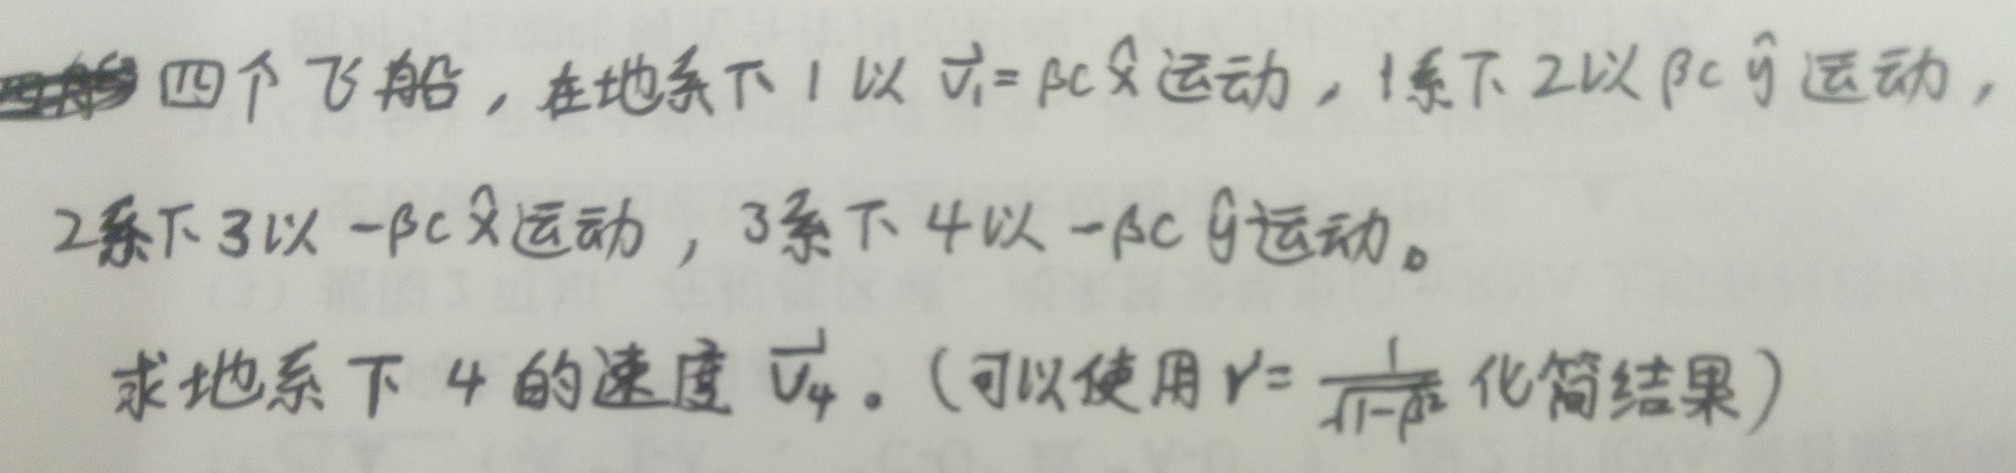 四个飞船，在地系下1以 v⃗₁=βc x̂ 运动，1系下2以βc ŷ 运动，
2系下3以 -βc x̂ 运动，3系下4以 -βc ŷ 运动。
求地系下4的速度 v⃗₄。(可以使用γ=1/√(1-β²) 化简结果)